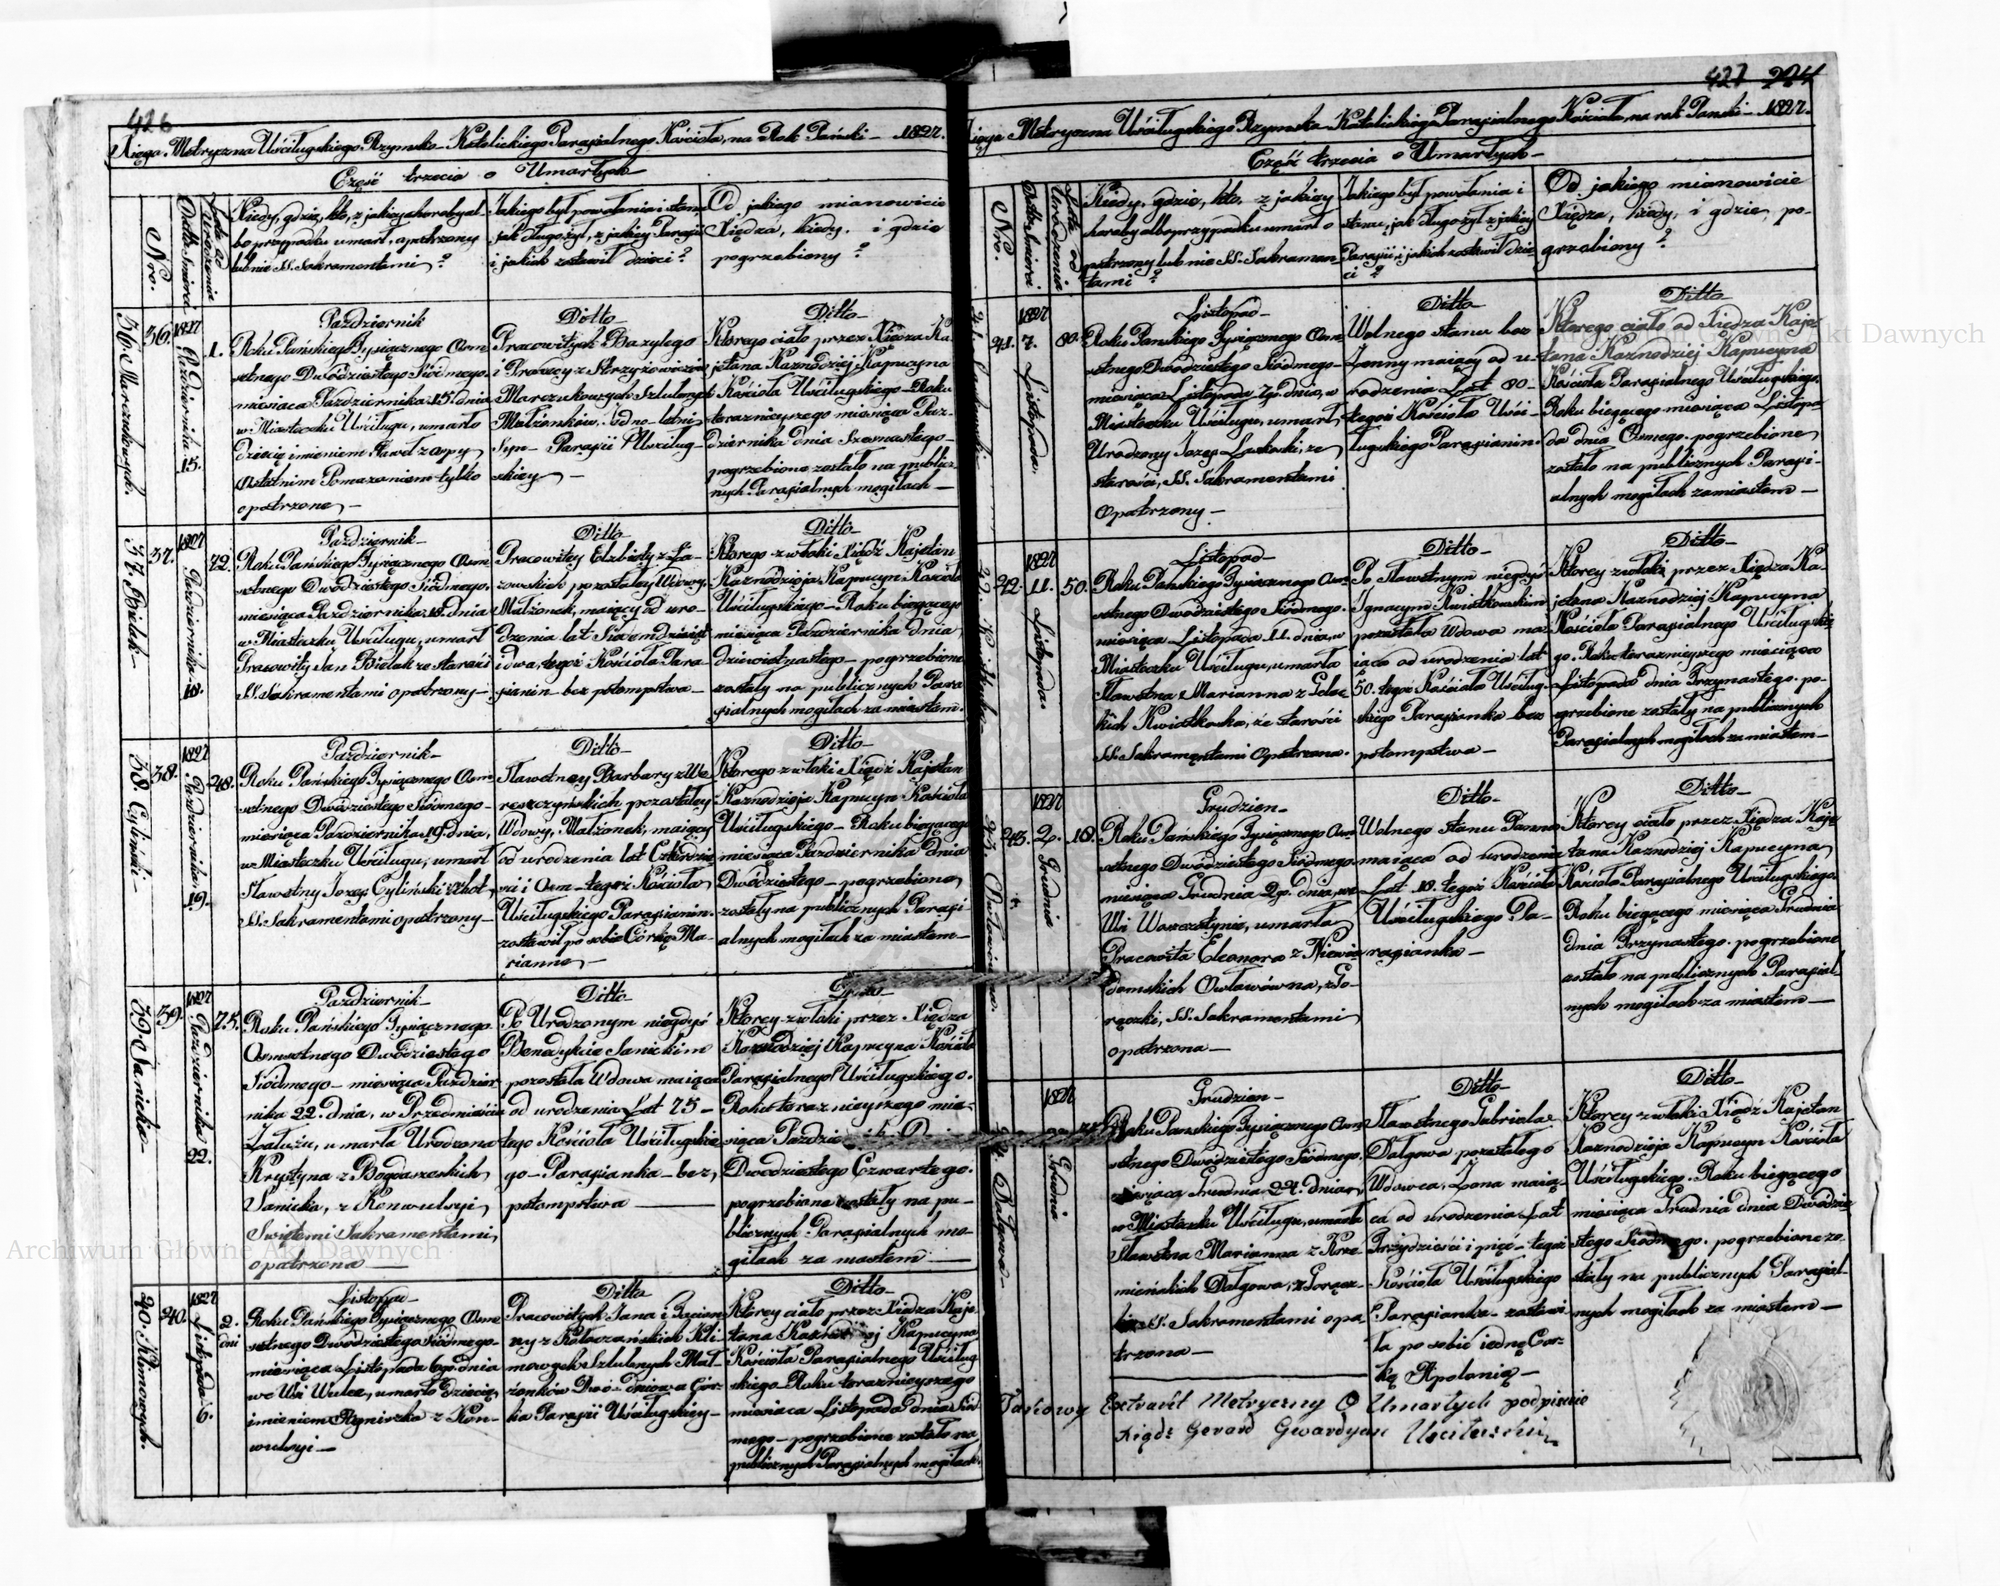 426
Xięga Metryczna Uściługskiego Rzymsko Katolickiego Parafialnego Kościoła, na Rok Pański — 1827.
Część trzecia o Umarłych
Nro.
Data Śmierci
Lata od Urodzenia
Kiedy, gdzie, kto, z jakiey choroby al
bo przypadku umarł, opatrzony
lub nie SS. Sakramentami?
Jakiego był powołania i stanu
jak długo żył, z jakiey Parafii
i jakich zostawił dzieci?
Od jakiego mianowicie
Xiędza, kiedy, i gdzie
pogrzebiony?
36. Marczukowych.
36.
1827
Października
15.
1.
Październik
Roku Pańskiego Tysiącznego Osm
setnego Dwódziestego Siódmego
miesiąca Października 15. dnia
w Miasteczku Uściługu, umarło
dziecię imieniem Paweł z ospy
Ostatnim Pomazaniem tylko
opatrzone —
Ditto —
Pracowitych Bazylego
i Prowcy z Strzyżowiczów
Marczukowych Szlubnych
Małżonków, iedno-letni
Syn — Parafii Uściług-
skiey —
Ditto —
Którego ciało przez Xiędza Ka
jetana Kaznodziej Kapucyna
Kościoła Uściługskiego — Roku
teraznieyszego miesiąca Paz-
dziernika dnia Szesnastego —
pogrzebione zostało na publicz
nych Parafialnych mogiłach —
37. Bielak —
37.
1827
Października
18.
72.
Październik —
Roku Pańskiego Tysiącznego Osm
setnego Dwódziestego Siódmego
miesiąca Października 18. dnia
w Miasteczku Uściługu, umarł
Pracowity Jan Bielak ze starości
SS. Sakramentami opatrzony —
Ditto —
Pracowitey Elżbiety z Ła-
zowskich pozostałey Wdowy,
Małżonek, maiący od uro-
dzenia lat Siedmdziesiąt
i dwa, tegoż Kościoła Para-
fianin bez potomstwa —
Ditto —
Którego zwłoki Xiądz Kajetan
Kaznodzieja Kapucyn Kościoła
Uściługskiego — Roku bieżącego
miesiąca Października dnia
dziewietnastego — pogrzebione
zostały na publicznych Para
fialnych mogiłach za miastem.
38. Cyliński —
38.
1827
Października
19.
48.
Październik —
Roku Pańskiego Tysiącznego Osm
setnego Dwódziestego Siódmego —
miesiąca Października 19. dnia,
w Miasteczku Uściługu, umarł
Sławetny Jozef Cyliński
SS. Sakramentami opatrzony —
Ditto —
Sławetney Barbary z We
reszczyńskich pozostałey
Wdowy, Małżonek, maiący
od urodzenia lat Czterdzie
ści i Osm — tegoż Kościoła
Uściługskiego Parafianin.
zostawił po sobie Córkę Ma-
riannę —
Ditto —
Którego zwłoki Xiądz Kajetan
Kaznodzieja Kapucyn Kościoła
Uściługskiego — Roku bieżącego
miesiąca Października dnia
Dwódziestego — pogrzebione
zostały na publicznych Parafi
alnych mogiłach za miastem —
39. Sanicka —
39.
1827
Października
22.
75.
Październik —
Roku Pańskiego Tysiącznego
Osmsetnego Dwódziestego
Siódmego — miesiąca Paździer
nika 22. dnia, w Przedmieściu
Załużu, umarła Urodzona
Krystyna z Bogdaszeskich
Sanicka, z Konwulsyi
Świętemi Sakramentami
opatrzona —
Ditto
Po Urodzonym niegdyś
Benedykcie Sanickim
pozostała Wdowa maiąca
od urodzenia Lat 75 —
tego Kościoła Uściługskie
go — Parafianka — bez
potomstwa —
Ditto —
Którey zwłoki przez Xiędza
Kaznodziej Kapucyna Kościoła
Parafialnego Uściługskiego.
Roku teraznieyszego mie-
siąca
Dwódziestego Czwartego.
pogrzebione zostały na pu-
blicznych Parafialnych mo-
giłach za mostem —
40. Klimowych.
40.
1827
Listopada
6.
2.
dni
Listopad —
Roku Pańskiego Tysiącznego Osm
setnego Dwódziestego Siódmego —
miesiąca Listopada 6go dnia
we Wsi Wulce, umarło dziecię,
imieniem Agnieszka z Kon-
wulsyi —
Ditto
Pracowitych Jana i
ny z Kołoczańskich Kli
mowych Szlubnych Mał
żonków Dwó-dniowa Cór-
ka Parafii Uściługskiey —
Ditto —
Którey ciało przez Xiędza Kaje
tana Kaznodziej Kapucyna
Kościoła Parafialnego Uściług
skiego — Roku teraznieyszego
miesiąca Listopada dnia Siód
mego — pogrzebione zostało na
publicznych Parafialnych mogiłach.
427 224
Xięga Metryczna Uściługskiego Rzymsko Katolickiego Parafialnego Kościoła, na rok Panski — 1827.
Część trzecia o Umarłych —
Nro.
Data Śmierci
Lata od Urodzenia
Kiedy, gdzie, kto, z jakiey
choroby albo przypadku umarł o
patrzony lub nie SS. Sakramen-
tami?
Jakiego był powołania i
stanu, jak długo żył z jakiey
Parafii, i jakich zostawił dzie
ci?
Od jakiego mianowicie
Xiędza, kiedy, i gdzie po-
grzebiony?
41.
1827
7.
Listopada.
80.
Listopad —
Roku Panskiego Tysiącznego Osm
setnego Dwódziestego Siódmego —
miesiąca Listopada 7go dnia, w
Miasteczku Uściługu, umarł
Urodzony Jozef Laskoski, ze
starości, SS. Sakramentami
Opatrzony —
Ditto
Wolnego stanu bez
Zenny maiący od u-
rodzenia Lat 80 —
tegoż Kościoła Uści-
ługskiego Parafianin
Ditto
Ktorego ciało od Xiędza Kaje
tana Kaznodziej Kapucyna
Kościoła Parafialnego Uściługskiego.
Roku bieżącego miesiąca Listopa
da dnia Osmego pogrzebione
zostało na publicznych Parafi-
alnych mogiłach za miastem —
42.
1827
11.
Listopada.
50.
Listopad —
Roku Panskiego Tysiącznego Osm
setnego Dwódziestego Siódmego.
miesiąca Listopada 11. dnia, w
Miasteczku Uściługu, umarła
Sławetna Marianna z Golec
kich Kwiatkoska, ze starości
SS. Sakramentami Opatrzona.
Ditto —
Po Sławetnym niegdyś
Ignacym Kwiatkowskim
pozostała Wdowa ma-
iąca od urodzenia lat
50. tegoż Kościoła Uściług-
skiego Parafianka bez
potomstwa —
Ditto —
Ktorey zwłoki przez Xiędza Ka-
jetana Kaznodziej Kapucyna
Kościoła Parafialnego Uściługskie
go. Roku teraznieyszego miesiąca
Listopada dnia Trzynastego. po-
grzebione zostały na publicznych
Parafialnych mogiłach za miastem —
43.
1827
2.
Grudnia
18.
Grudzien —
Roku Panskiego Tysiącznego Osm
setnego Dwódziestego Siódmego
miesiąca Grudnia 2go dnia, we
Wsi Waszczatynie, umarła
Pracowita Eleonora z Niewia
domskich Owławówna, z Go-
rączki, SS. Sakramentami
opatrzona —
Ditto —
Wolnego stanu Panna
maiąca od urodzenia
Lat 18. tegoż Kościoła
Uściługskiego Pa-
rafianka —
Ditto —
Ktorey ciało przez Xiędza Kaje
tana Kaznodziej Kapucyna
Kościoła Parafialnego Uściługskiego
Roku bieżącego miesiąca Grudnia
dnia Trzynastego. pogrzebione
zostało na publicznych Parafial
nych mogiłach za miastem —
Dalgowa —
1827
Grudnia
Grudzien —
Roku Panskiego Tysiącznego Osm
setnego Dwódziestego Siódmego.
miesiąca Grudnia 24. dnia,
w Miasteczku Uściługu, umarła
Sławetna Marianna z Krze
mieńskich Dalgowa, z Gorącz-
ki SS. Sakramentami opa
trzona —
Ditto —
Sławetnego Gabriela
Dalgowa pozostałego
Wdowca, Zona maią-
ca od urodzenia Lat
Trzydzieści i pięć — tegoż
Kościoła Uściługskiego
Parafianka — zostawi
ła po sobie iednę Cor-
kę Apolonię —
Ditto —
Ktorey zwłoki Xiądz Kajetan
Kaznodzieja Kapucyn Kościoła
Uściługskiego. Roku bieżącego
miesiąca Grudnia dnia Dwódzie
stego Siódmego. pogrzebione zo
stały na publicznych Parafial-
nych mogiłach za miastem —
Takowy Extrakt Metryczny O Umarłych podpisuie
Xiądz Gerard Gwardyan Uściłuski
Archiwum Główne Akt Dawnych
Archiwum Główne Akt Dawnych